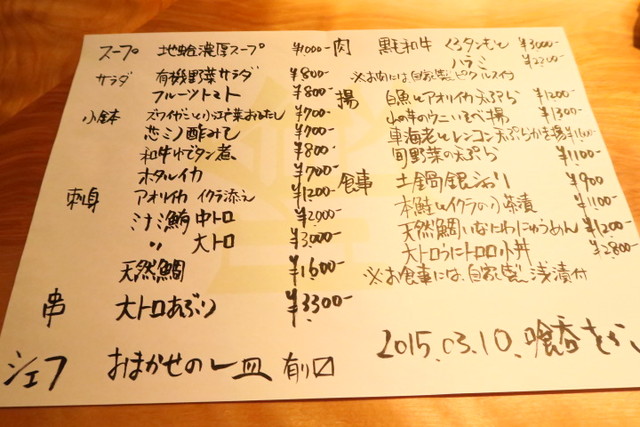 スープ 地蛤濃厚スープ ¥1000-
サラダ 有機野菜サラダ ¥800-
フルーツトマト ¥800-
小鉢 ズワイガニと小江戸菜おひたし ¥700-
芯ミノ酢みそ ¥700-
和牛ゆでタン煮 ¥800-
ホタルイカ ¥700-
刺身 アオリイカ イクラ添え ¥1200-
汁鮪 中トロ ¥2000-
〃 大トロ ¥3000-
天然鯛 ¥1600-
串 大トロあぶり ¥3300-
シェフ おまかせの一皿 有り〼
肉 黒毛和牛 くろタンもと ¥3000-
ハラミ ¥2200-
※お肉には、自家製ピクルス付
揚 白魚とアオリイカ天ぷら ¥1200-
山の芋のウニいそべ揚 ¥1300-
車海老とレンコン天ぷらかき揚
旬野菜の天ぷら ¥1100-
食事 土鍋銀シャリ ¥900
本鮭とイクラのお茶漬 ¥1100-
天然鯛いなにわにゅうめん ¥1200-
大トロうにトロロ小丼 ¥2800-
※お食事には、自家製浅漬付
2015.03.10.喰呑